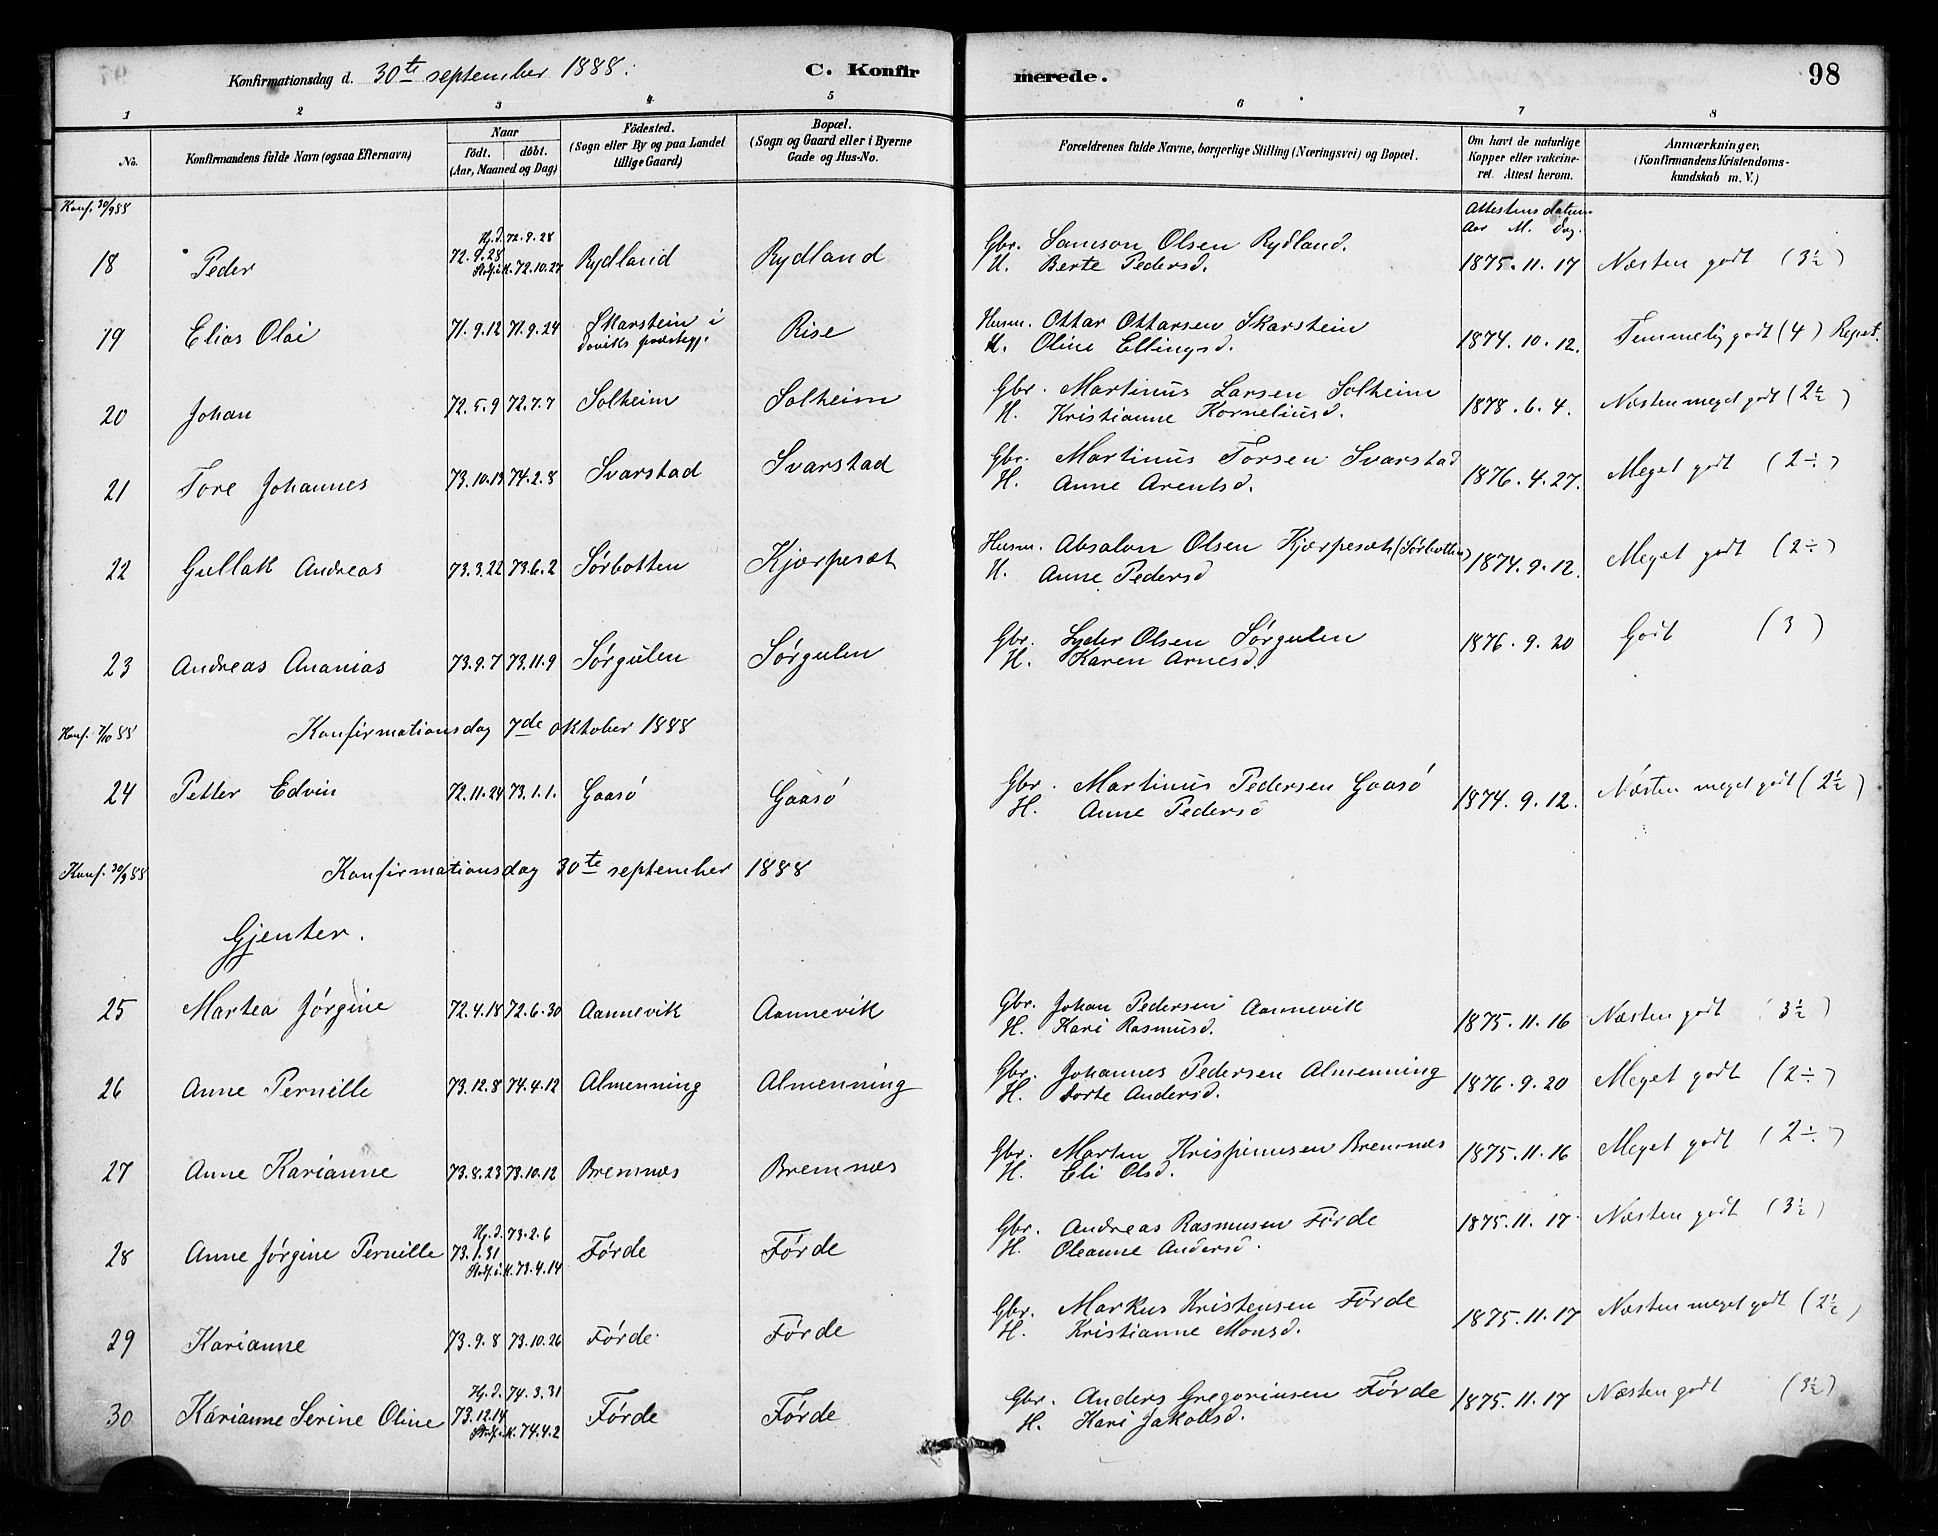 Konfirmationsdag d. 30te september 1888.
C. Konfirmerede.
98
1 2 3 4 5 6 7 8
No.
Konfirmandens fulde Navn (ogsaa Efternavn)
Naar
født. døbt.
(Aar, Maaned og Dag)
Födested.
(Sogn eller By og paa Landet
tillige Gaard)
Bopæl.
(Sogn og Gaard eller i Byerne
Gade og Hus-No.
Forældrenes fulde Navne, borgerlige Stilling (Næringsvei) og Bopæl.
Om havt de naturlige
Kopper eller vakcine-
ret. Attest herom.
Anmærkninger.
(Konfirmandens Kristendoms-
kundskab m. V.)
Konf. 30/9 88
Attestens datum
Aar M. Dag.
18 Peder 72.9.28 Hj.d. 72.9.28 k. 72.10.27 Rydland Rydland Gbr. Samson Olsen Rydland. 1875.11.17 Næsten godt (3½)
H. Berte Pedersd.
19 Elias Olai 71.9.12 71.9.24 Skarstein i Rise Husm. Ottar Ottarsen Skarstein 1874.10.12. Temmelig godt (4) Repet.
Daviks præstegj. H. Oline Ellingsd.
20 Johan 72.5.9 72.7.7 Solheim Solheim Gbr. Martinus Larsen Solheim 1878.6.4. Næsten meget godt (2½)
H. Kristianne Korneliusd.
21 Tore Johannes 73.10.19 74.2.8 Svarstad Svarstad Gbr. Martinus Torsen Svarstad 1876.4.27. Meget godt (2÷)
H. Anne Arentsd.
22 Gullak Andreas 73.3.22 73.6.2 Sørbotten Kjærpesæt Husm. Absalon Olsen Kjærpesæt (Sørbotten) 1874.9.12. Meget godt (2÷)
H. Anne Pedersd
23 Andreas Ananias 73.9.7 73.11.9 Sørgulen Sørgulen Gbr. Lyder Olsen Sørgulen 1876.9.20 Godt (3)
H. Karen Arnesd.
Konf. 7/10 88 Konfirmationsdag 7de oktober 1888
24 Petter Edvin 72.11.24 73.1.1. Gaasö Gaasö Gbr. Martinus Pedersen Gaasö 1874.9.12. Næsten meget godt (2½)
H. Anne Pedersd
Konf. 30/9 88 Konfirmationsdag 30te september 1888
Gjenter.
25 Martea Jørgine 72.4.18 72.6.30 Aannevik Aannevik Gbr. Johan Pedersen Aannevik 1875.11.16 Næsten godt (3½)
H. Kari Rasmusd.
26 Anne Pernille 73.12.8 74.4.12 Almenning Almenning Gbr. Johannes Pedersen Almenning 1876.9.20 Meget godt (2÷)
H. Dorte Andersd.
27 Anne Karianne 73.8.23 73.10.12 Bremnæs Bremnæs Gbr. Marten Krispinusen Bremnæs 1875.11.16 Meget godt (2÷)
H. Eli Olsd.
28 Anne Jørgine Pernille 73.1.31 Hj.d. 73.2.6 k. 73.4.14 Förde Förde Gbr. Andreas Rasmusen Förde 1875.11.17 Næsten godt (3½)
H. Oleanne Andersd.
29 Karianne 73.9.8 73.10.26 Förde Förde Gbr. Markus Kristensen Förde 1875.11.17 Næsten meget godt (2½)
H. Kristianne Monsd.
30 Karianne Serine Oline 73.12.14 Hj.d. 74.3.31 k. 74.4.2 Förde Förde Gbr. Anders Gregoriusen Förde 1875.11.17 Næsten godt (3½)
H. Kari Jakobsd.